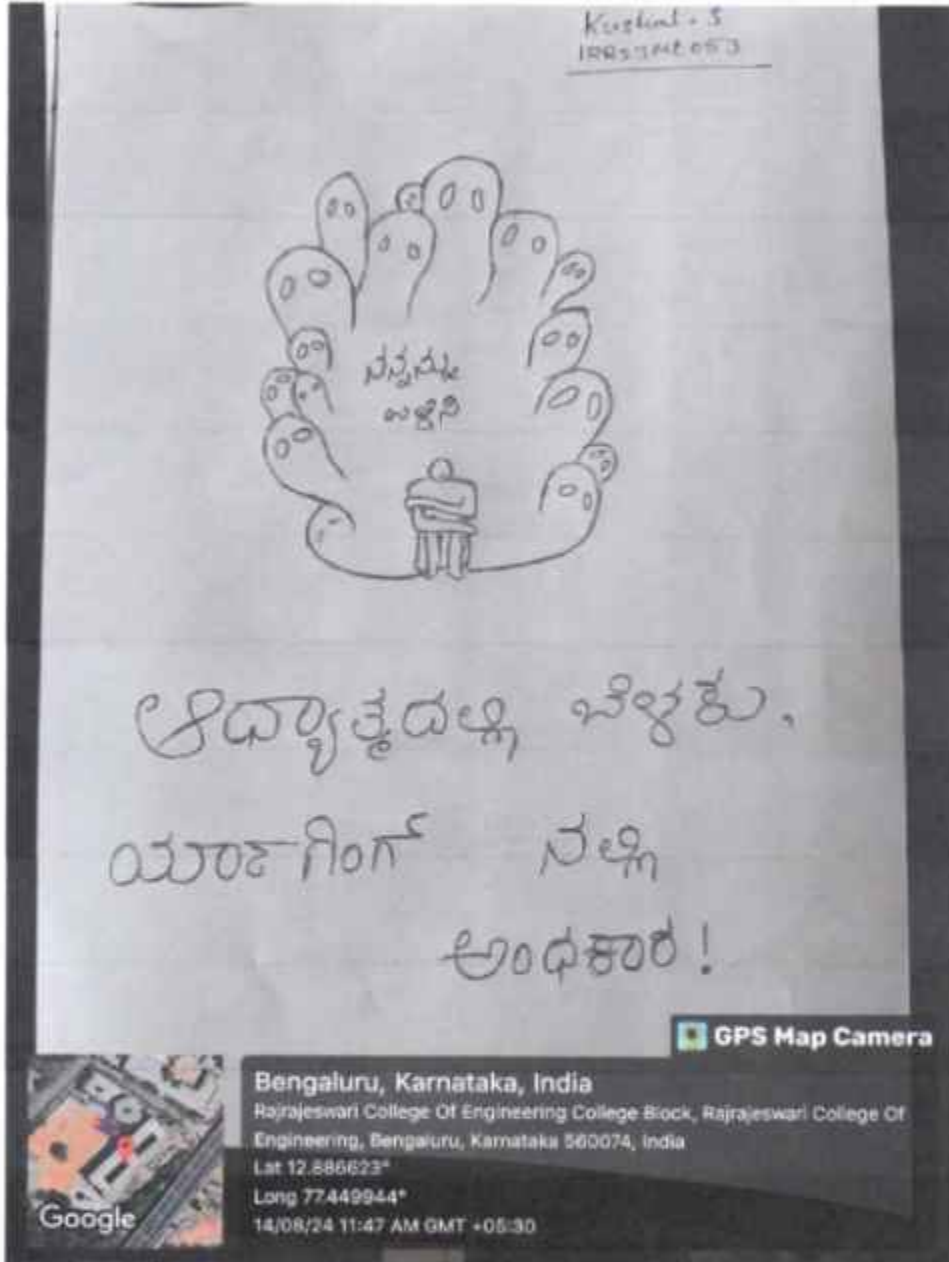 ನನ್ನನ್ನು
ಉಳಿಸಿ
ಆಧ್ಯಾತ್ಮದಲ್ಲಿ ಬೆಳಕು.
ರ್ಯಾಗಿಂಗ್ ನಲ್ಲಿ
ಅಂಧಕಾರ!
GPS Map Camera
Bengaluru, Karnataka, India
Rajrajeswari College Of Engineering College Block, Rajrajeswari College Of
Engineering, Bengaluru, Karnataka 560074, India
Lat 12.886623°
Long 77.449944°
14/08/24 11:47 AM GMT +05:30
Google